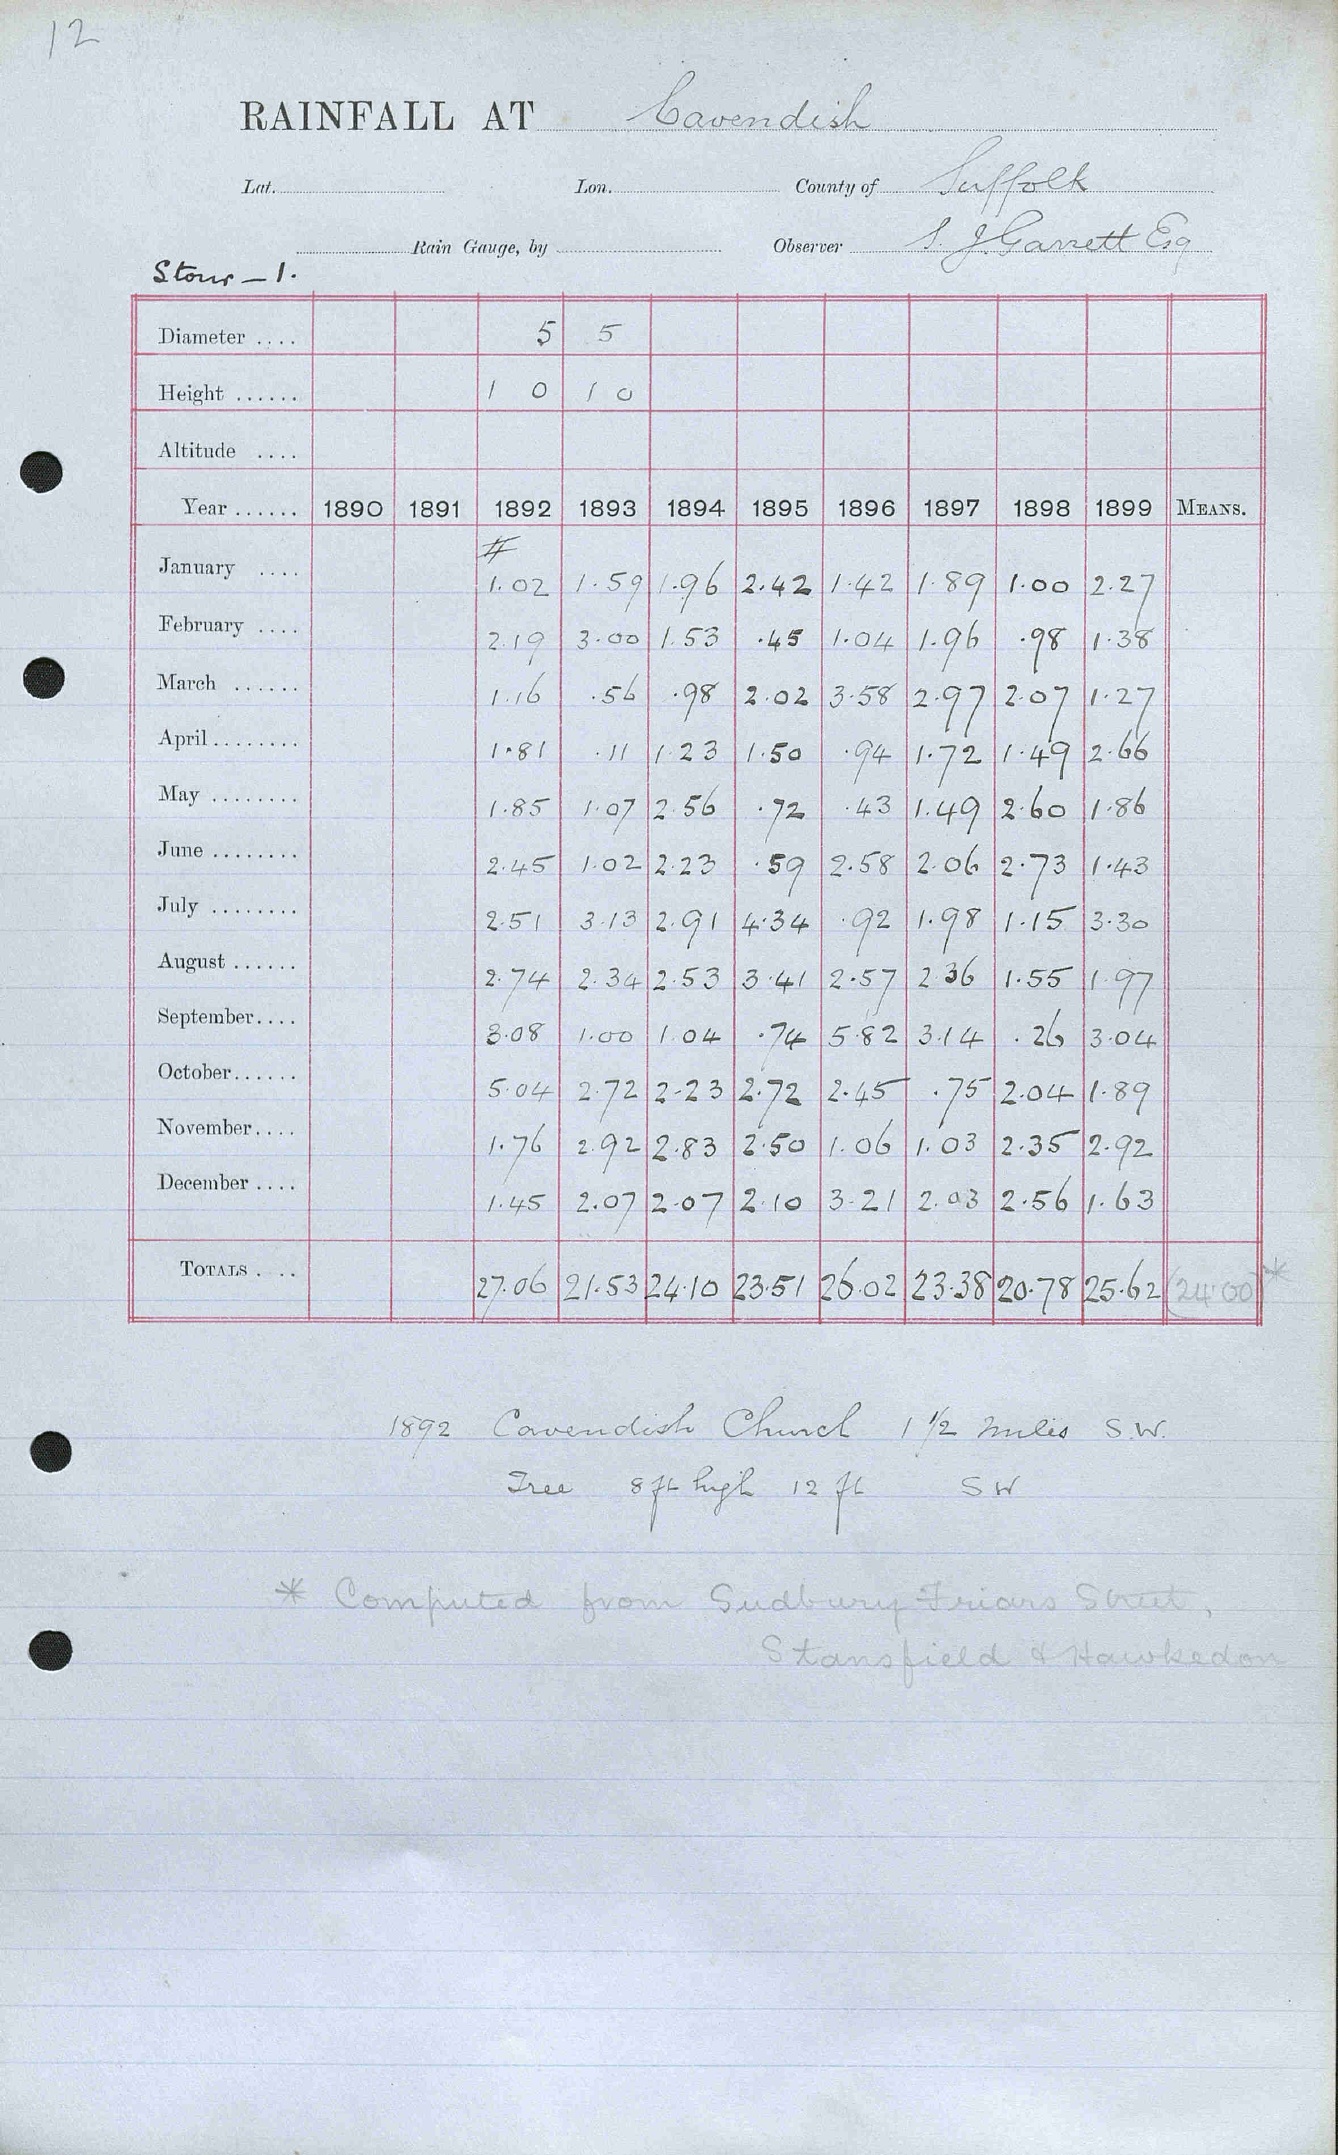 12
RAINFALL AT Cavendish
Lat. Lon. County of Suffolk
Rain Gauge, by Observer S. J. Garrett Esq
Stour - 1.
Diameter .... 5 5
Height ...... 1 0 1 0
Altitude ....
Year ...... 1890 1891 1892 1893 1894 1895 1896 1897 1898 1899 MEANS.
#
January .... 1.02 1.59 1.96 2.42 1.42 1.89 1.00 2.27
February .... 2.19 3.00 1.53 .45 1.04 1.96 .98 1.38
March ...... 1.16 .56 .98 2.02 3.58 2.97 2.07 1.27
April ........ 1.81 .11 1.23 1.50 .94 1.72 1.49 2.66
May ........ 1.85 1.07 2.56 .72 .43 1.49 2.60 1.86
June ........ 2.45 1.02 2.23 .59 2.58 2.06 2.73 1.43
July ........ 2.51 3.13 2.91 4.34 .92 1.98 1.15 3.30
August ...... 2.74 2.34 2.53 3.41 2.57 2.36 1.55 1.97
September.... 3.08 1.00 1.04 .74 5.82 3.14 .26 3.04
October...... 5.04 2.72 2.23 2.72 2.45 .75 2.04 1.89
November.... 1.76 2.92 2.83 2.50 1.06 1.03 2.35 2.92
December .... 1.45 2.07 2.07 2.10 3.21 2.03 2.56 1.63
TOTALS .... 27.06 21.53 24.10 23.51 26.02 23.38 20.78 25.62 (24.00)*
1892 Cavendish Church 1 1/2 miles S.W.
Tree 8 ft high 12 ft SW
* Computed from Sudbury Friars Street,
Stansfield & Hawkedon